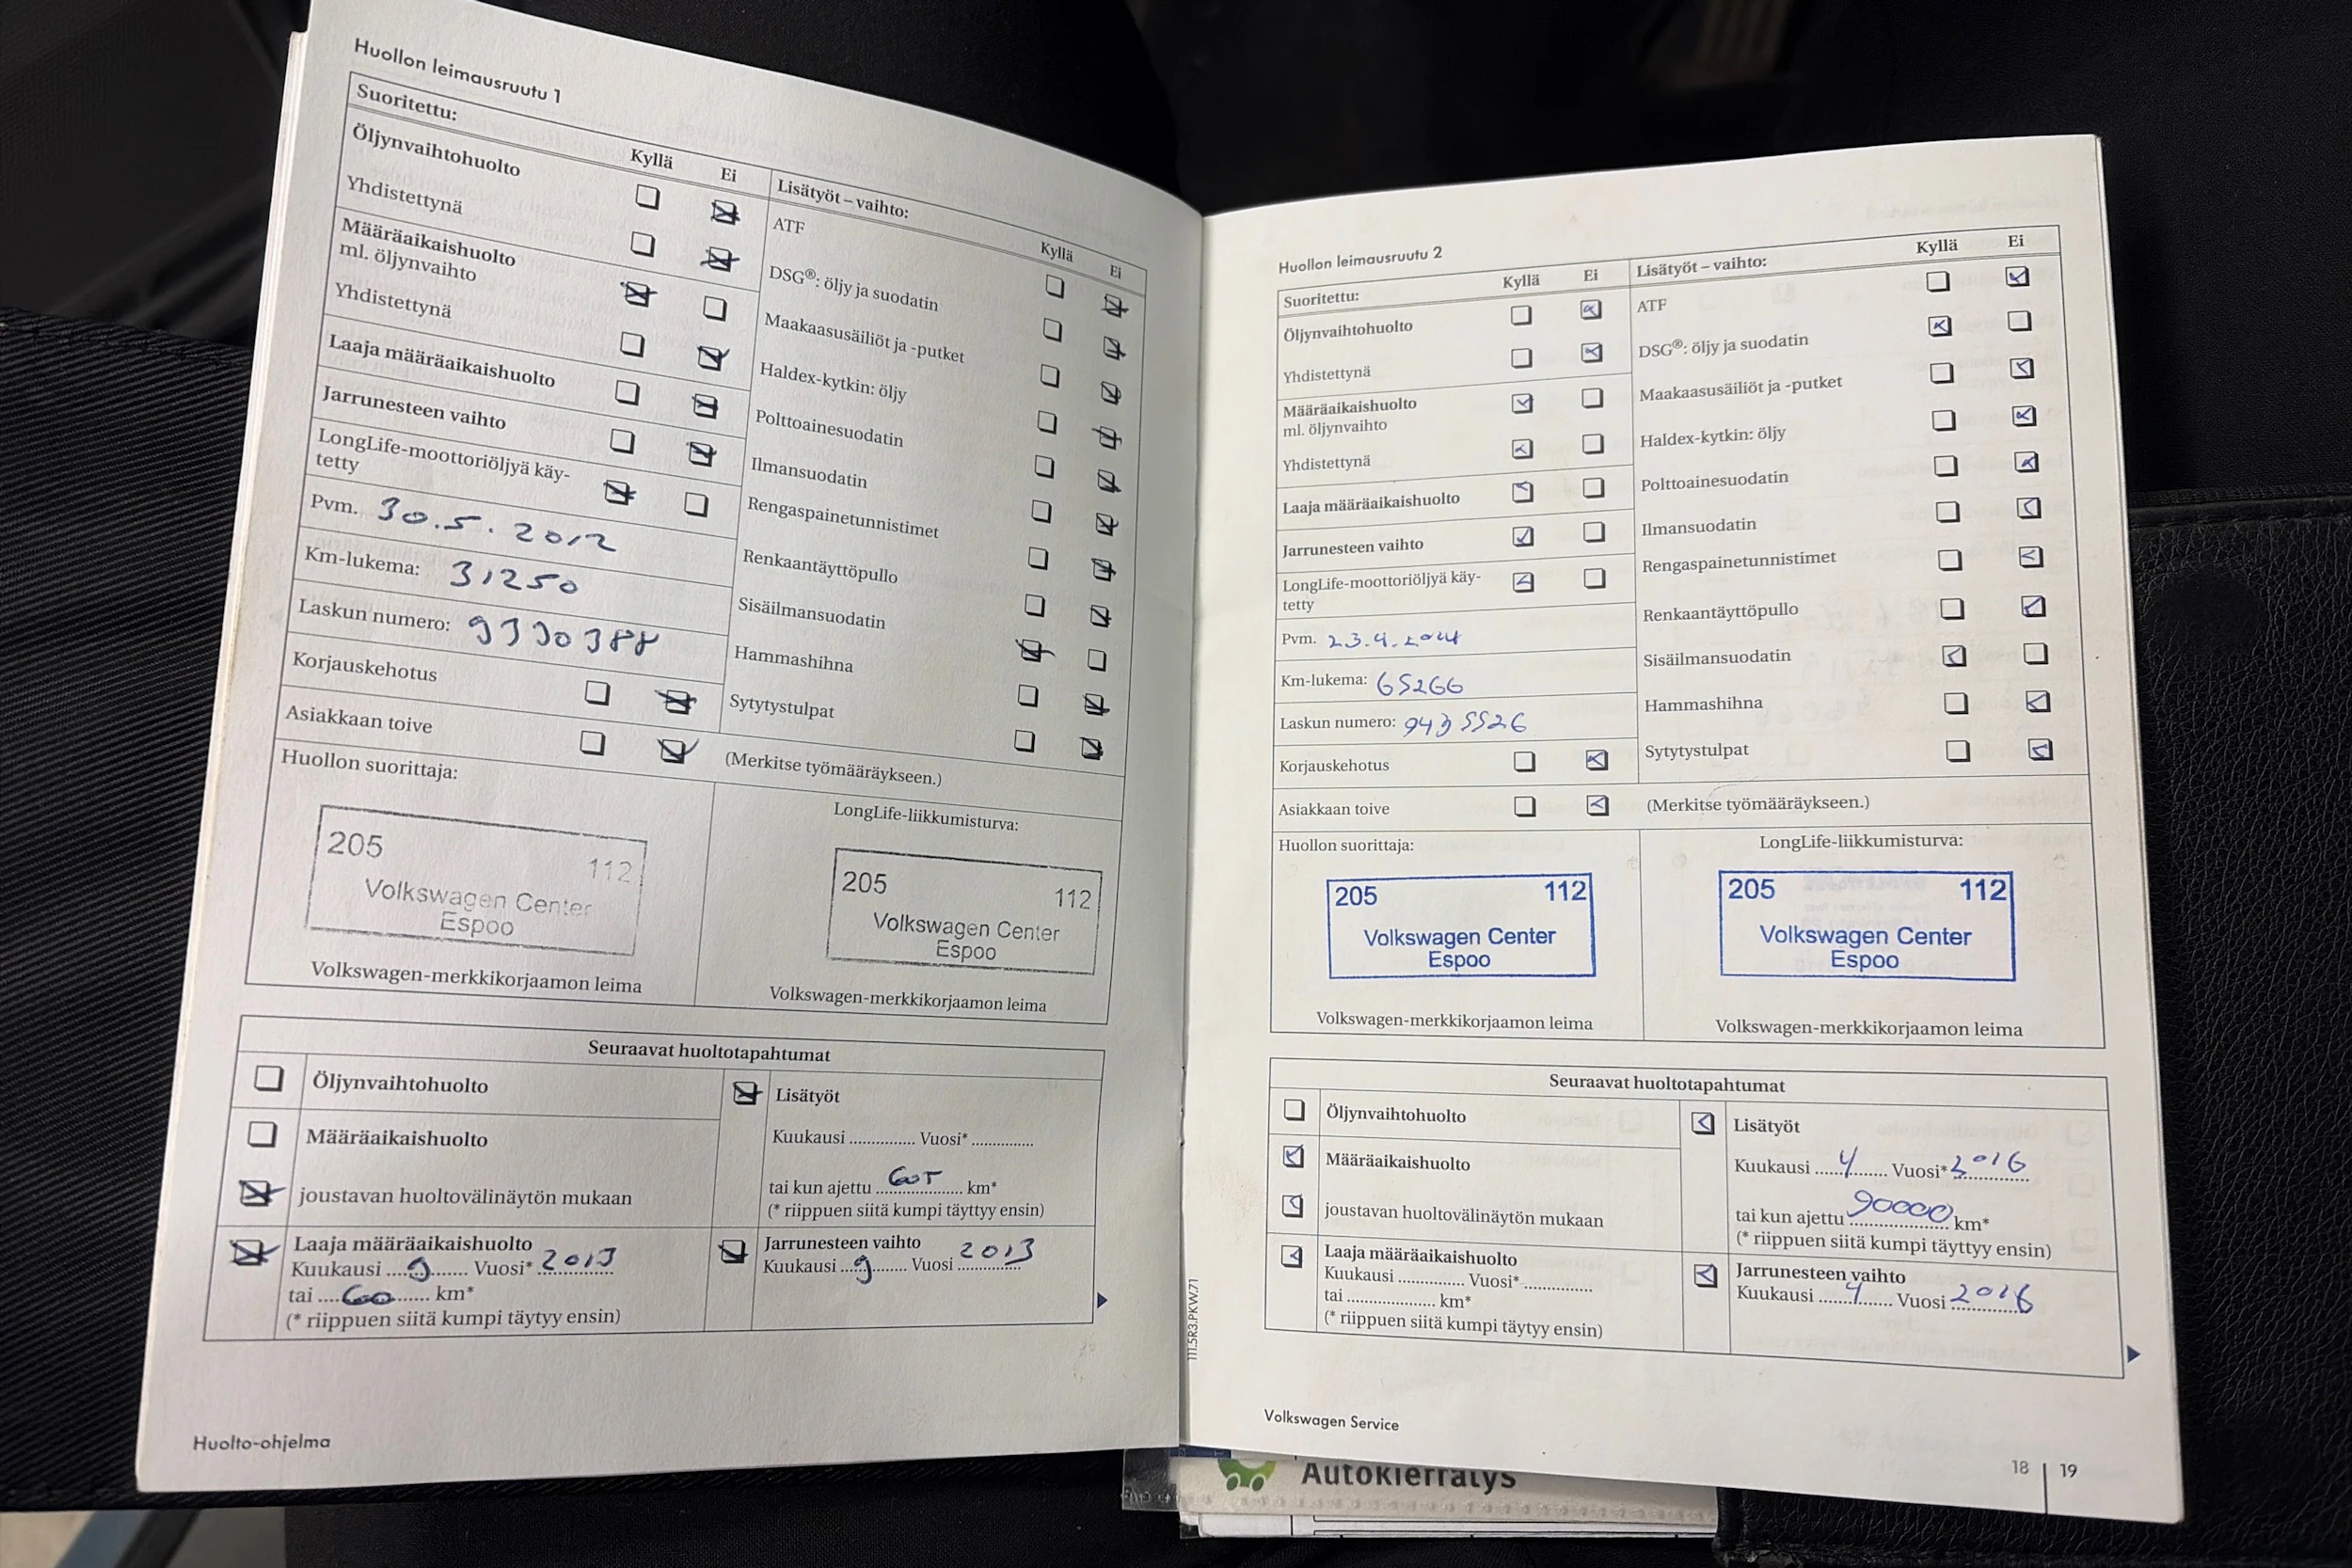 Huollon leimausruutu 1
Suoritettu:
Kyllä Ei
Öljynvaihtohuolto
Yhdistettynä
Määräaikaishuolto
ml. öljynvaihto
Yhdistettynä
Laaja määräaikaishuolto
Jarrunesteen vaihto
LongLife-moottoriöljyä käy-
tetty
Pvm. 30.5.2012
Km-lukema: 31250
Laskun numero: 9330388
Korjauskehotus
Asiakkaan toive
Lisätyöt – vaihto:
Kyllä Ei
ATF
DSG®: öljy ja suodatin
Maakaasusäiliöt ja -putket
Haldex-kytkin: öljy
Polttoainesuodatin
Ilmansuodatin
Rengaspainetunnistimet
Renkaantäyttöpullo
Sisäilmansuodatin
Hammashihna
Sytytystulpat
(Merkitse työmääräykseen.)
Huollon suorittaja:
205 112
Volkswagen Center
Espoo
Volkswagen-merkkikorjaamon leima
LongLife-liikkumisturva:
205 112
Volkswagen Center
Espoo
Volkswagen-merkkikorjaamon leima
Seuraavat huoltotapahtumat
Öljynvaihtohuolto
Määräaikaishuolto
joustavan huoltovälinäytön mukaan
Laaja määräaikaishuolto
Kuukausi ....9....... Vuosi* 2013
tai ....60........ km*
(* riippuen siitä kumpi täytyy ensin)
Lisätyöt
Kuukausi ............... Vuosi* ..............
tai kun ajettu 60T km*
(* riippuen siitä kumpi täyttyy ensin)
Jarrunesteen vaihto
Kuukausi ....9....... Vuosi 2013
Huolto-ohjelma
Huollon leimausruutu 2
Suoritettu:
Kyllä Ei
Öljynvaihtohuolto
Yhdistettynä
Määräaikaishuolto
ml. öljynvaihto
Yhdistettynä
Laaja määräaikaishuolto
Jarrunesteen vaihto
LongLife-moottoriöljyä käy-
tetty
Pvm. 23.4.2014
Km-lukema: 65266
Laskun numero: 9435526
Korjauskehotus
Asiakkaan toive
Lisätyöt – vaihto:
Kyllä Ei
ATF
DSG®: öljy ja suodatin
Maakaasusäiliöt ja -putket
Haldex-kytkin: öljy
Polttoainesuodatin
Ilmansuodatin
Rengaspainetunnistimet
Renkaantäyttöpullo
Sisäilmansuodatin
Hammashihna
Sytytystulpat
(Merkitse työmääräykseen.)
Huollon suorittaja:
205 112
Volkswagen Center
Espoo
Volkswagen-merkkikorjaamon leima
LongLife-liikkumisturva:
205 112
Volkswagen Center
Espoo
Volkswagen-merkkikorjaamon leima
Seuraavat huoltotapahtumat
Öljynvaihtohuolto
Määräaikaishuolto
joustavan huoltovälinäytön mukaan
Laaja määräaikaishuolto
Kuukausi ............... Vuosi* ...............
tai ..................... km*
(* riippuen siitä kumpi täytyy ensin)
Lisätyöt
Kuukausi ......4....... Vuosi* 2016
tai kun ajettu 90000 km*
(* riippuen siitä kumpi täyttyy ensin)
Jarrunesteen vaihto
Kuukausi ......4....... Vuosi 2016
111.5R3.PKW.71
Volkswagen Service
18 | 19
Autokierrätys